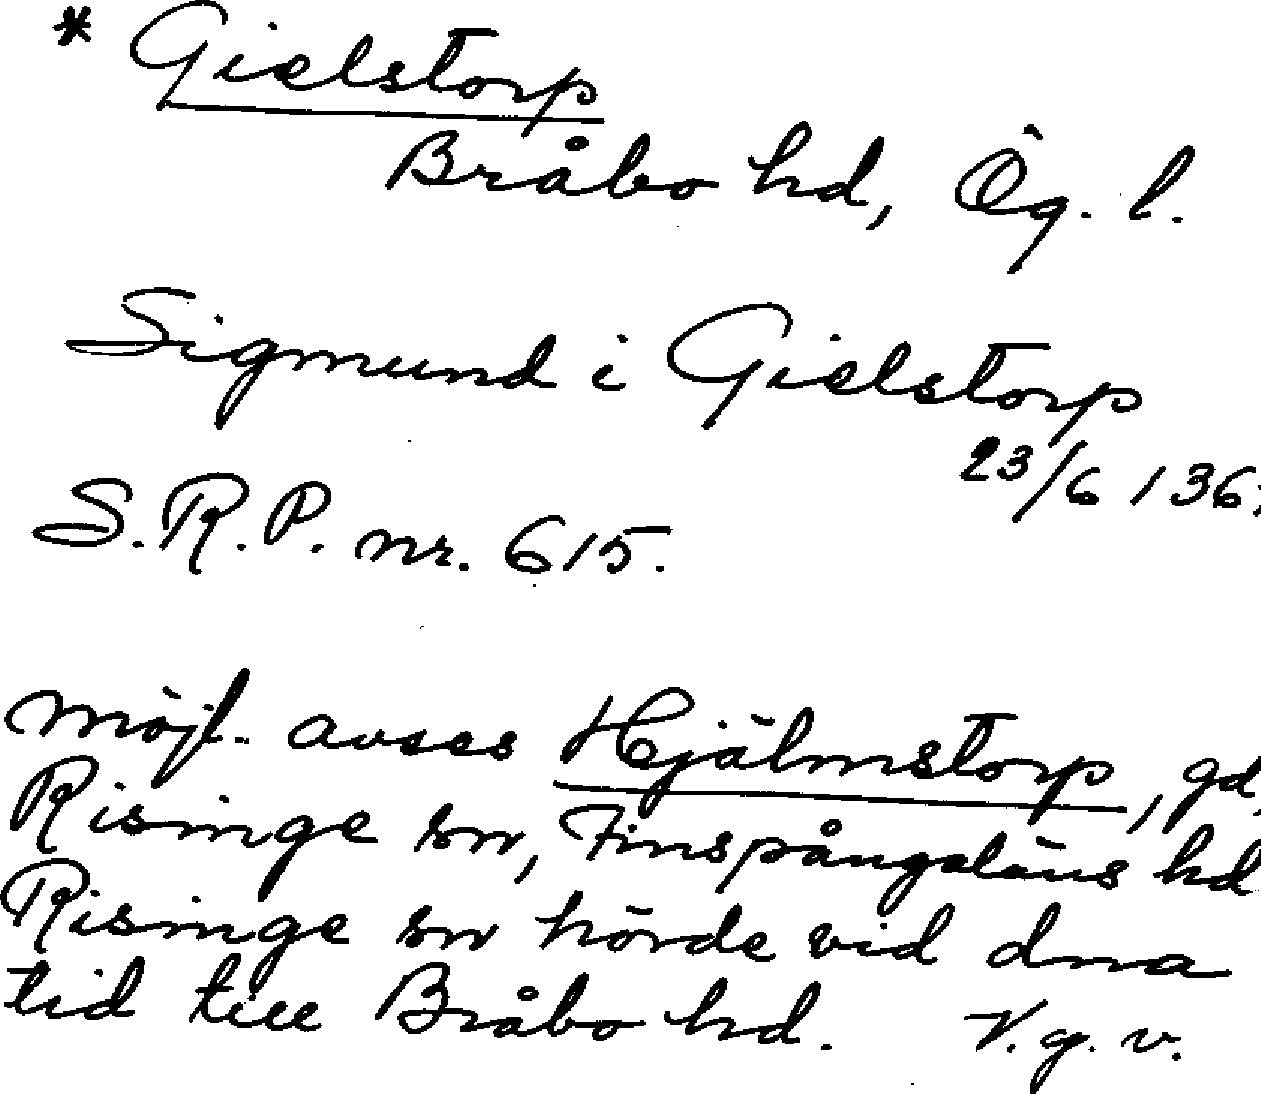 * Gielstorp
Bråbo hd, Ög. l.
Sigmund i Gielstorp
23/6 136
S.R.P. nr. 615.
möjl. avses Hjälmstorp, gd,
Risinge sn, Finspångaläns hd
Risinge sn hörde vid dna
tid till Bråbo hd. V.g.v.